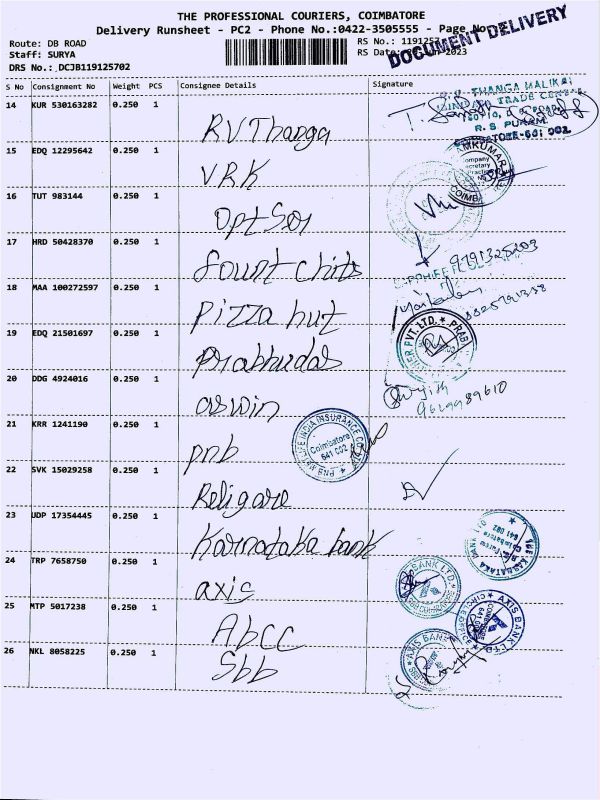 THE PROFESSIONAL COURIERS, COIMBATORE
Delivery Runsheet - PC2 - Phone No.:0422-3505555 - Page No
DOCUMENT DELIVERY
Route: DB ROAD
Staff: SURYA
DRS No.: DCJB119125702
RS No.: 119125
RS Date 2023
S No Consignment No Weight PCS Consignee Details Signature
14 KUR 530163282 0.250 1 RV Thanga
THANGA MALIKAI
TRADE CENTRE
R. S. PURAM
641 002
15 EDQ 12295642 0.250 1 VRK
COIMB
16 TUT 983144 0.250 1 Opt Sor
17 HRD 50428370 0.250 1 fount chits
9791325203
18 MAA 100272597 0.250 1 Pizza hut
19 EDQ 21501697 0.250 1 prabhudas
PVT. LTD. ★ PRAB
20 DDG 4924016 0.250 1 aswin
9629989610
21 KRR 1241190 0.250 1 pnb
PNB METLIFE INDIA INSURANCE CO
Coimbatore
641 002
22 SVK 15029258 0.250 1 Religare
23 UDP 17354445 0.250 1 Karnataka bank
KARNATAKA BANK LTD
24 TRP 7658750 0.250 1 axis
BANK LTD.
25 MTP 5017238 0.250 1 Abcc
AXIS BANK LTD.
26 NKL 8058225 0.250 1 Sbb
AXIS BANK